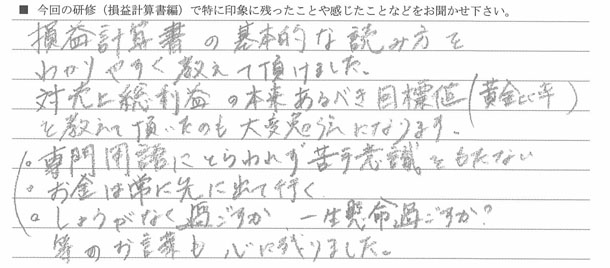 ■ 今回の研修（損益計算書編）で特に印象に残ったことや感じたことなどをお聞かせ下さい。
損益計算書の基本的な読み方を
わかりやすく教えて頂けました。
対売上総利益の本来あるべき目標値（黄金比率）
を教えて頂いたのも大変勉強になります。
。専門用語にとらわれず苦手意識をもたない
。お金は常に先に出て行く
。しょうがなく過ごすか 一生懸命過ごすか？
等のお言葉も心に残りました。